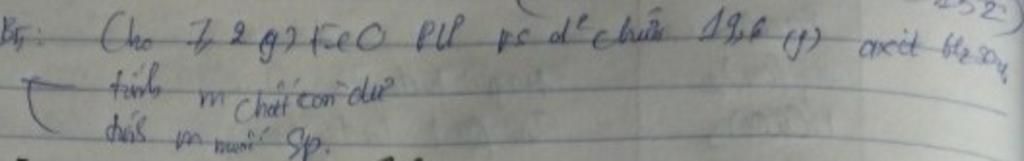 B5: Cho 7,2 (g) FeO PU vs d² chứa 19,6 (g) axit H2SO4
tính m chất còn dư?
tính m muối Sp.